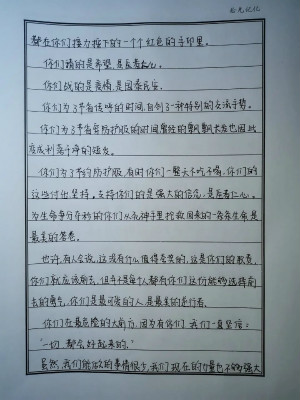 拾光记忆
都在你们接力按下的一个个红色的手印里。
你们搞的是希望,是医者仁心。
你们战的是疫情,是国泰民安。
你们为了节省传呼的时间,自创了一种特别的交流手势。
你们为了节省穿防护服的时间,曾经的飘飘长发也因此
变成利落干净的短发。
你们为了节约防护服,有时你们一整天不吃不喝,你们的
这些付出坚持。支持你们的是强大的信念,是医者仁心。
为生命争分夺秒的你们从死神手里抢救回来的一条条生命是
最美的答卷。
也许,有人会说,这没有什么值得夸奖的,这是你们的职责,
你们就应该前去,但并不是每个人都有你们这份能够选择前
去的勇气,你们是最可爱的人,是最美的逆行者。
你们在最危险的大前方,因为有你们,我们一直坚信:
“一切,都会好起来的。”
虽然,我们能做的事情很少,我们现在的力量也不够强大